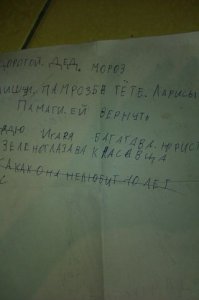 ДОРОТОЙ. ДЕД. МОРОЗ
ПИШУ. ПАМРОЗБЕ ТЁТЕ. ЛАРИСЫ
ПАМАГИ. ЕЙ ВЕРНУТЬ
ДЮ ИГАРЯ БАГАТАВА. ЮРИС
ЗЕЛЕНОГЛАЗАВА КРАСАВЦА
КАК ОНА НЕЛЮБИТ 10 ЛЕТ